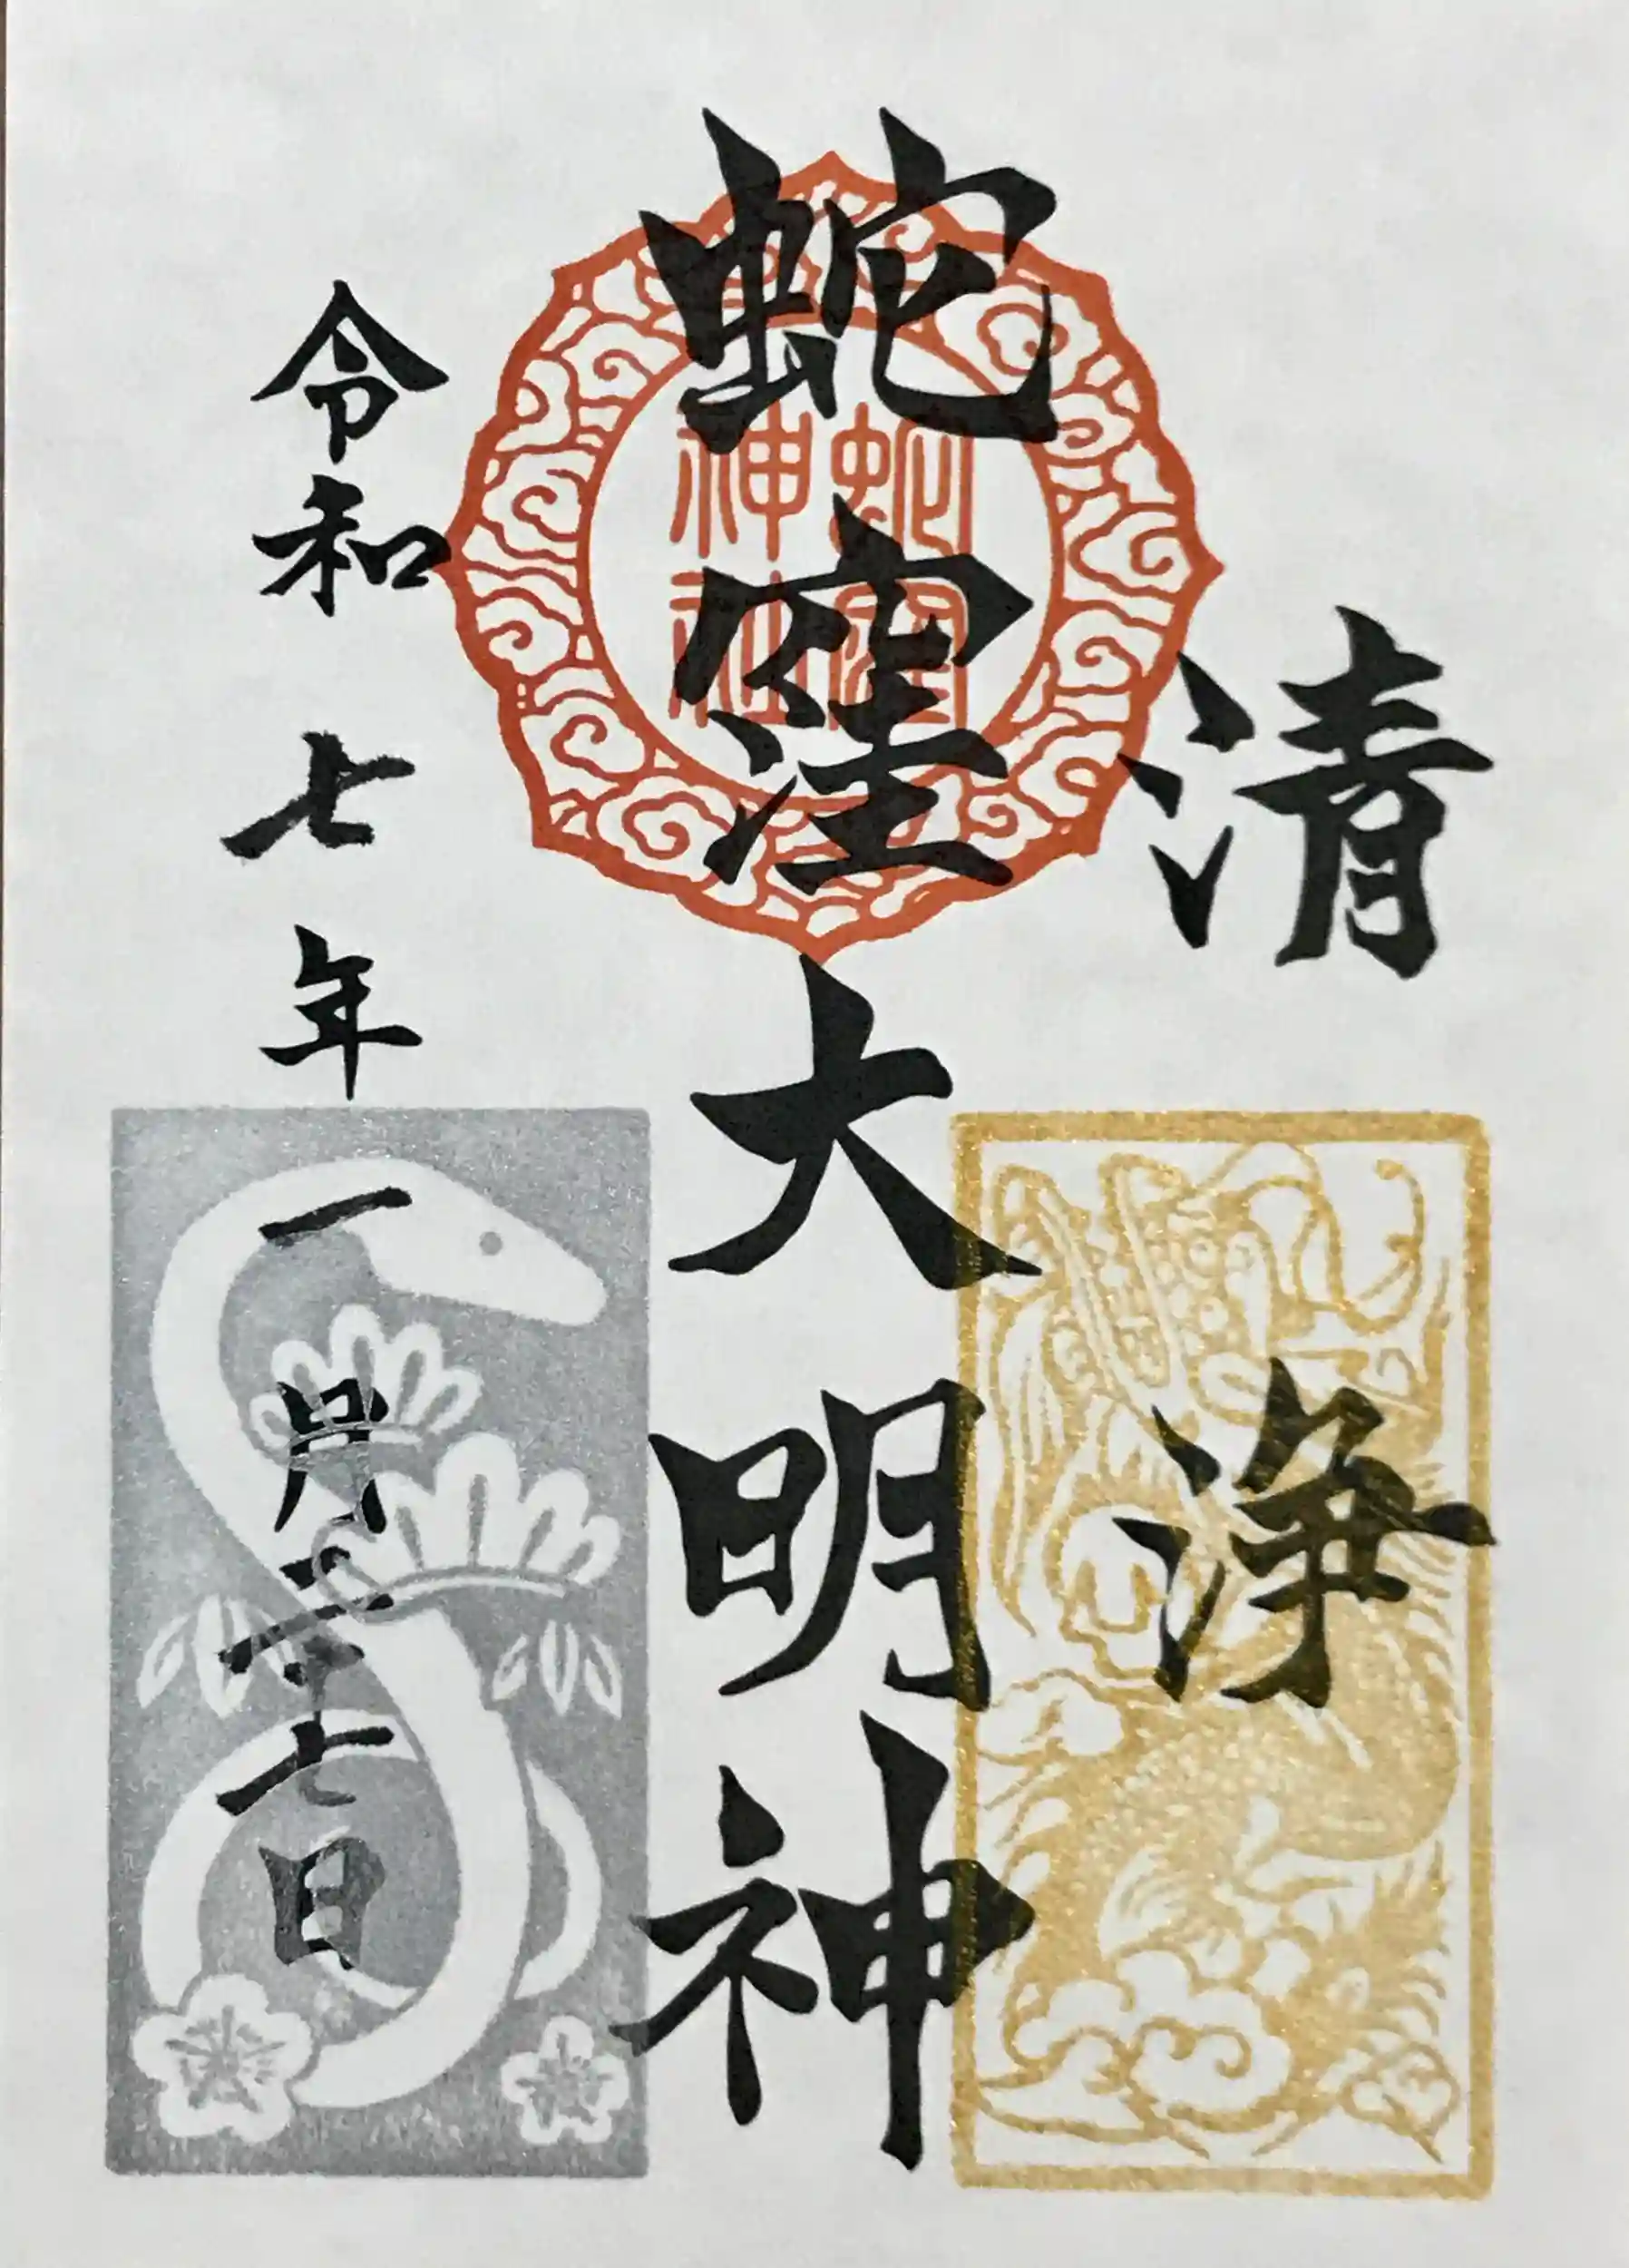 清浄
蛇窪大明神
蛇窪
神社
令和七年一月二十七日